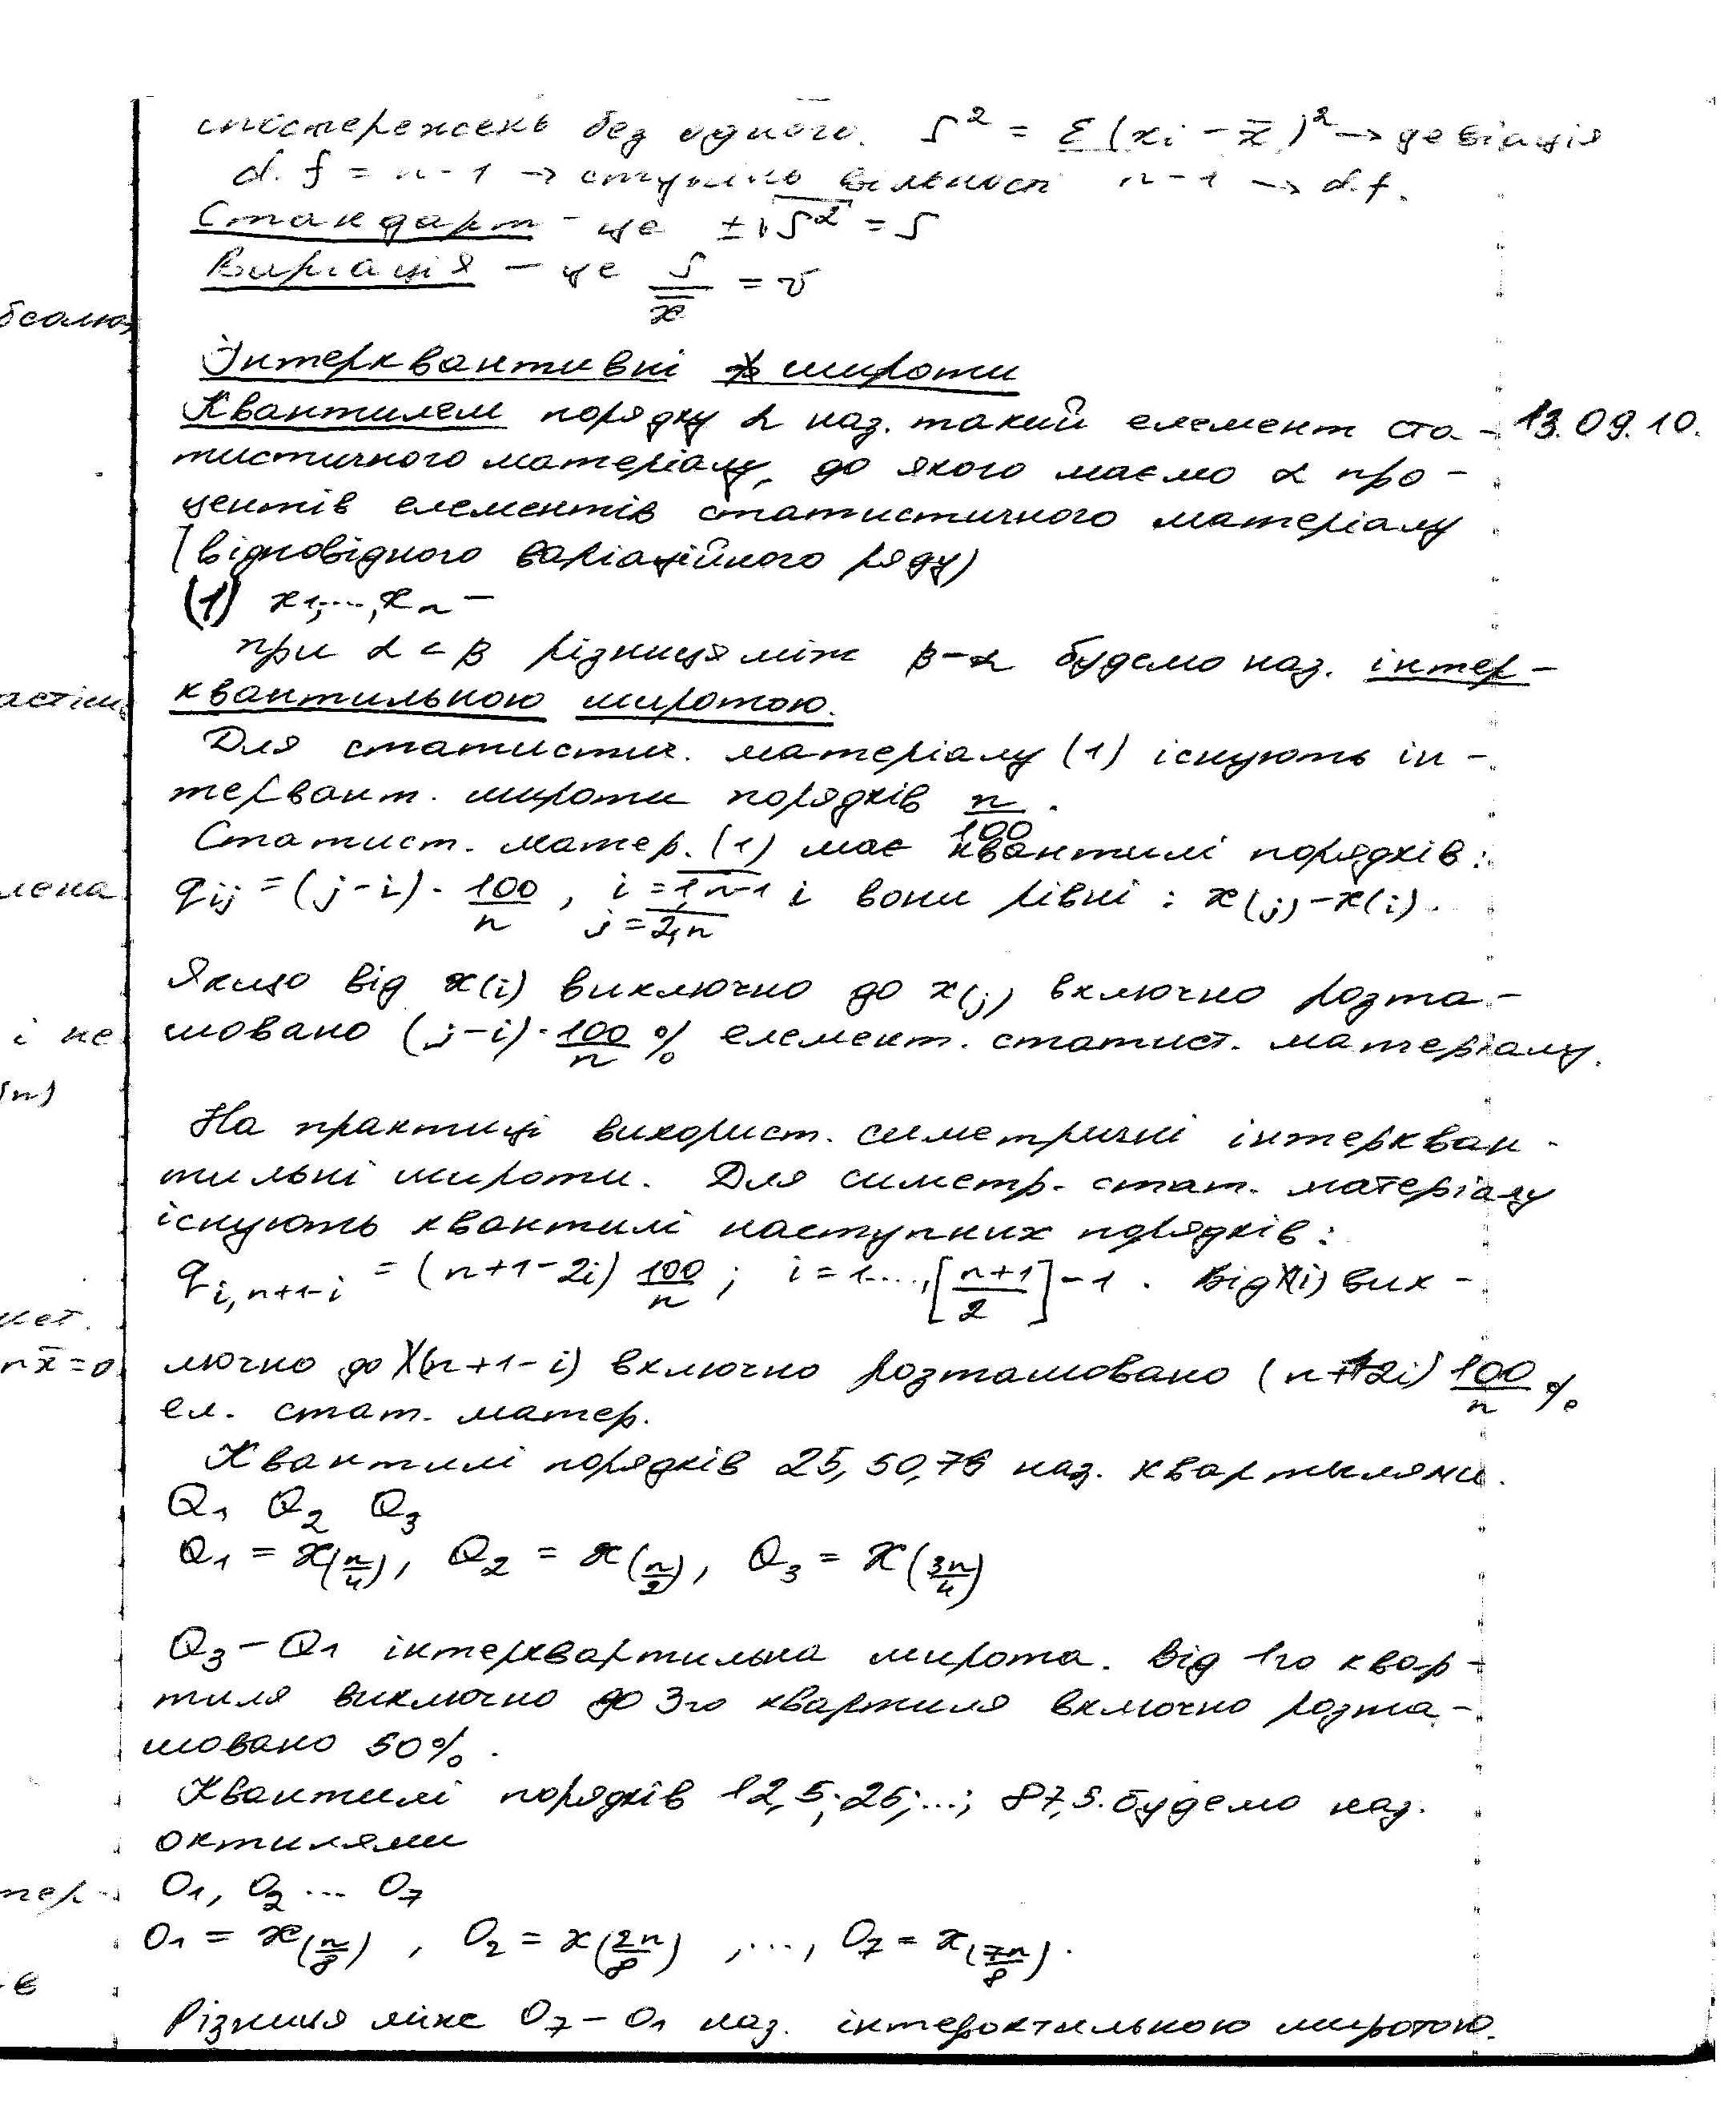 спостережень без одного. S² = Σ(xi − x̄)² → девіація
d.f = n-1 → ступінь вільності n-1 → d.f.
Стандарт - це ±√S² = S
Виріація — це S/x̄ = v
бсолют
Інтерквантивні широти
Квантилем порядку α наз. такий елемент ста- 13.09.10.
тистичного матеріалу, до якого маємо α про-
центів елементів статистичного матеріалу
(відповідного варіаційного ряду)
(1) x1,...,xn —
при α < β різниця між β-α будемо наз. інтер-
квантильною широтою.
Для статистич. матеріалу (1) існують ін-
терквант. широти порядків n/100.
Статист. матер. (1) має квантилі порядків:
лена
qij = (j-i)·100/n, i = 1,n-1 j = 2,n і вони рівні: x(j)-x(i).
Якщо від x(i) виключно до x(j) включно розта-
і не
шовано (j-i)·100/n % елемент. статист. матеріалу.
(n)
На практиці використ. симетричні інтеркван-
тильні широти. Для симетр. стат. матеріалу
існують квантилі наступних порядків:
q i,n+1-i = (n+1-2i) 100/n; i = 1...,[n+1/2]-1. Від X(i) вик-
nx̄=0
лючно до X(n+1-i) включно розташовано (n+1-2i) 100/n %
ел. стат. матер.
Квантилі порядків 25, 50, 75 наз. квартилями.
Q1 Q2 Q3
Q1 = x(n/4), Q2 = x(n/2), Q3 = x(3n/4)
Q3-Q1 інтерквартильна широта. Від 1го квар-
тиля виключно до 3го квартиля включно розта-
шовано 50%.
Квантилі порядків 12,5; 25;...; 87,5. будемо наз.
октилями
O1, O2 ... O7
O1 = x(n/8), O2 = x(2n/8), ..., O7 = x(7n/8).
Різниця між O7-O1 наз. інтероктильною широтою.